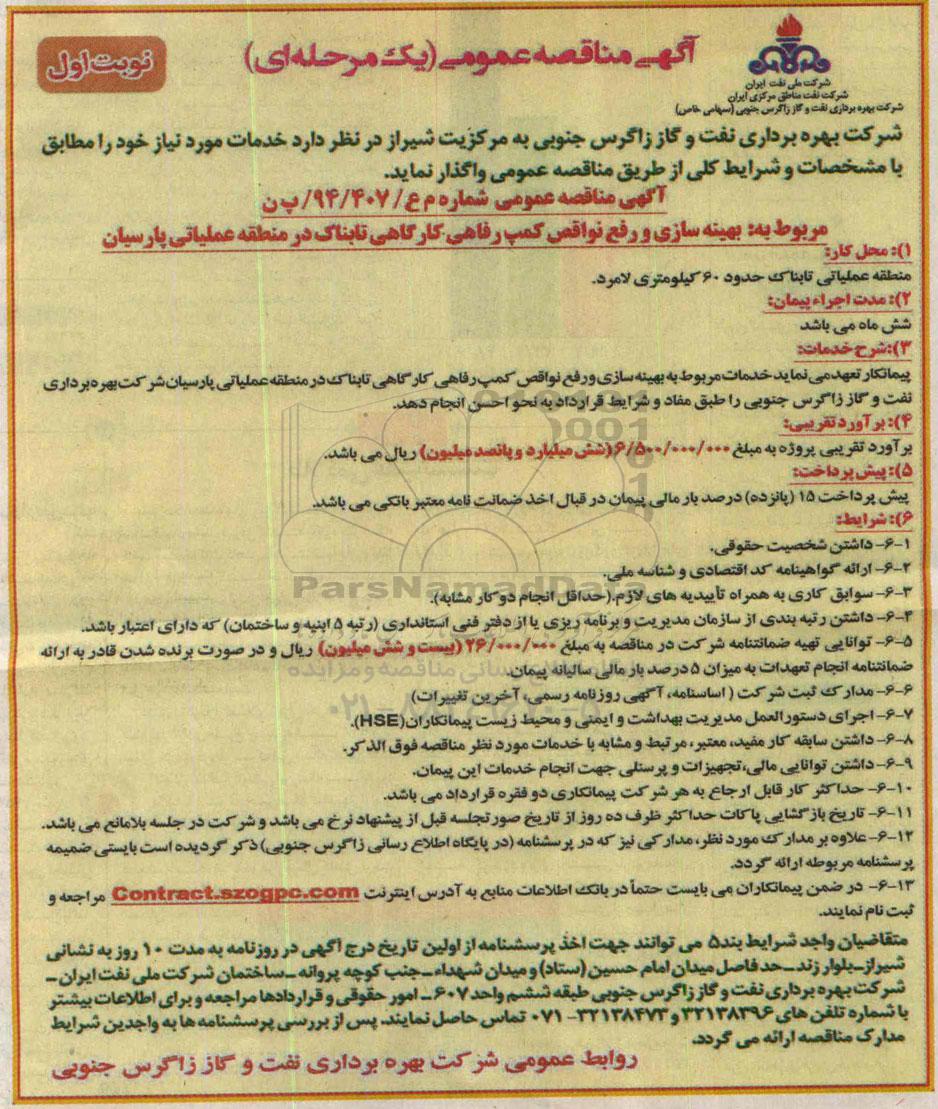 نوبت اول
آگهی مناقصه عمومی (یک مرحله‌ای)
شرکت ملی نفت ایران
شرکت نفت مناطق مرکزی ایران
شرکت بهره برداری نفت و گاز زاگرس جنوبی (سهامی خاص)
شرکت بهره برداری نفت و گاز زاگرس جنوبی به مرکزیت شیراز در نظر دارد خدمات مورد نیاز خود را مطابق
با مشخصات و شرایط کلی از طریق مناقصه عمومی واگذار نماید.
آگهی مناقصه عمومی شماره م ع/ ۹۴/۴۰۷/ پ ن
مربوط به: بهینه سازی و رفع نواقص کمپ رفاهی کارگاهی تابناک در منطقه عملیاتی پارسیان
۱): محل کار:
منطقه عملیاتی تابناک حدود ۶۰ کیلومتری لامرد.
۲): مدت اجراء پیمان:
شش ماه می باشد
۳):شرح خدمات:
پیمانکار تعهد می نماید خدمات مربوط به بهینه سازی و رفع نواقص کمپ رفاهی کارگاهی تابناک در منطقه عملیاتی پارسیان شرکت بهره برداری
نفت و گاز زاگرس جنوبی را طبق مفاد و شرایط قرارداد به نحو احسن انجام دهد.
۴): برآورد تقریبی:
برآورد تقریبی پروژه به مبلغ ۶/۵۰۰/۰۰۰/۰۰۰ (شش میلیارد و پانصد میلیون) ریال می باشد.
۵): پیش پرداخت:
پیش پرداخت ۱۵ (پانزده) درصد بار مالی پیمان در قبال اخذ ضمانت نامه معتبر بانکی می باشد.
۶): شرایط:
۶-۱- داشتن شخصیت حقوقی.
۶-۲- ارائه گواهینامه کد اقتصادی و شناسه ملی.
۶-۳- سوابق کاری به همراه تأییدیه های لازم.(حداقل انجام دو کار مشابه).
۶-۴- داشتن رتبه بندی از سازمان مدیریت و برنامه ریزی یا از دفتر فنی استانداری (رتبه ۵ ابنیه و ساختمان) که دارای اعتبار باشد.
۶-۵- توانایی تهیه ضمانتنامه شرکت در مناقصه به مبلغ ۲۶/۰۰۰/۰۰۰ (بیست و شش میلیون) ریال و در صورت برنده شدن قادر به ارائه
ضمانتنامه انجام تعهدات به میزان ۵ درصد بار مالی سالیانه پیمان.
۶-۶- مدارک ثبت شرکت ( اساسنامه، آگهی روزنامه رسمی، آخرین تغییرات)
۶-۷- اجرای دستورالعمل مدیریت بهداشت و ایمنی و محیط زیست پیمانکاران(HSE).
۶-۸- داشتن سابقه کار مفید، معتبر، مرتبط و مشابه با خدمات مورد نظر مناقصه فوق الذکر.
۶-۹- داشتن توانایی مالی،تجهیزات و پرسنلی جهت انجام خدمات این پیمان.
۶-۱۰- حداکثر کار قابل ارجاع به هر شرکت پیمانکاری دو فقره قرارداد می باشد.
۶-۱۱- تاریخ بازگشایی پاکات حداکثر ظرف ده روز از تاریخ صورتجلسه قبل از پیشنهاد نرخ می باشد و شرکت در جلسه بلامانع می باشد.
۶-۱۲- علاوه بر مدارک مورد نظر، مدارکی نیز که در پرسشنامه (در پایگاه اطلاع رسانی زاگرس جنوبی) ذکر گردیده است بایستی ضمیمه
پرسشنامه مربوطه ارائه گردد.
۶-۱۳- در ضمن پیمانکاران می بایست حتماً در بانک اطلاعات منابع به آدرس اینترنت Contract.szogpc.com مراجعه و
ثبت نام نمایند.
متقاضیان واجد شرایط بند۵ می توانند جهت اخذ پرسشنامه از اولین تاریخ درج آگهی در روزنامه به مدت ۱۰ روز به نشانی
شیراز-بلوار زند - حد فاصل میدان امام حسین (ستاد) و میدان شهداء - جنب کوچه پروانه - ساختمان شرکت ملی نفت ایران -
شرکت بهره برداری نفت و گاز زاگرس جنوبی طبقه ششم واحد ۶۰۷ - امور حقوقی و قراردادها مراجعه و برای اطلاعات بیشتر
با شماره تلفن های ۳۲۱۳۸۳۹۶ و ۳۲۱۳۸۴۷۳- ۰۷۱ تماس حاصل نمایند. پس از بررسی پرسشنامه ها به واجدین شرایط
مدارک مناقصه ارائه می گردد.
روابط عمومی شرکت بهره برداری نفت و گاز زاگرس جنوبی
ParsNamadData